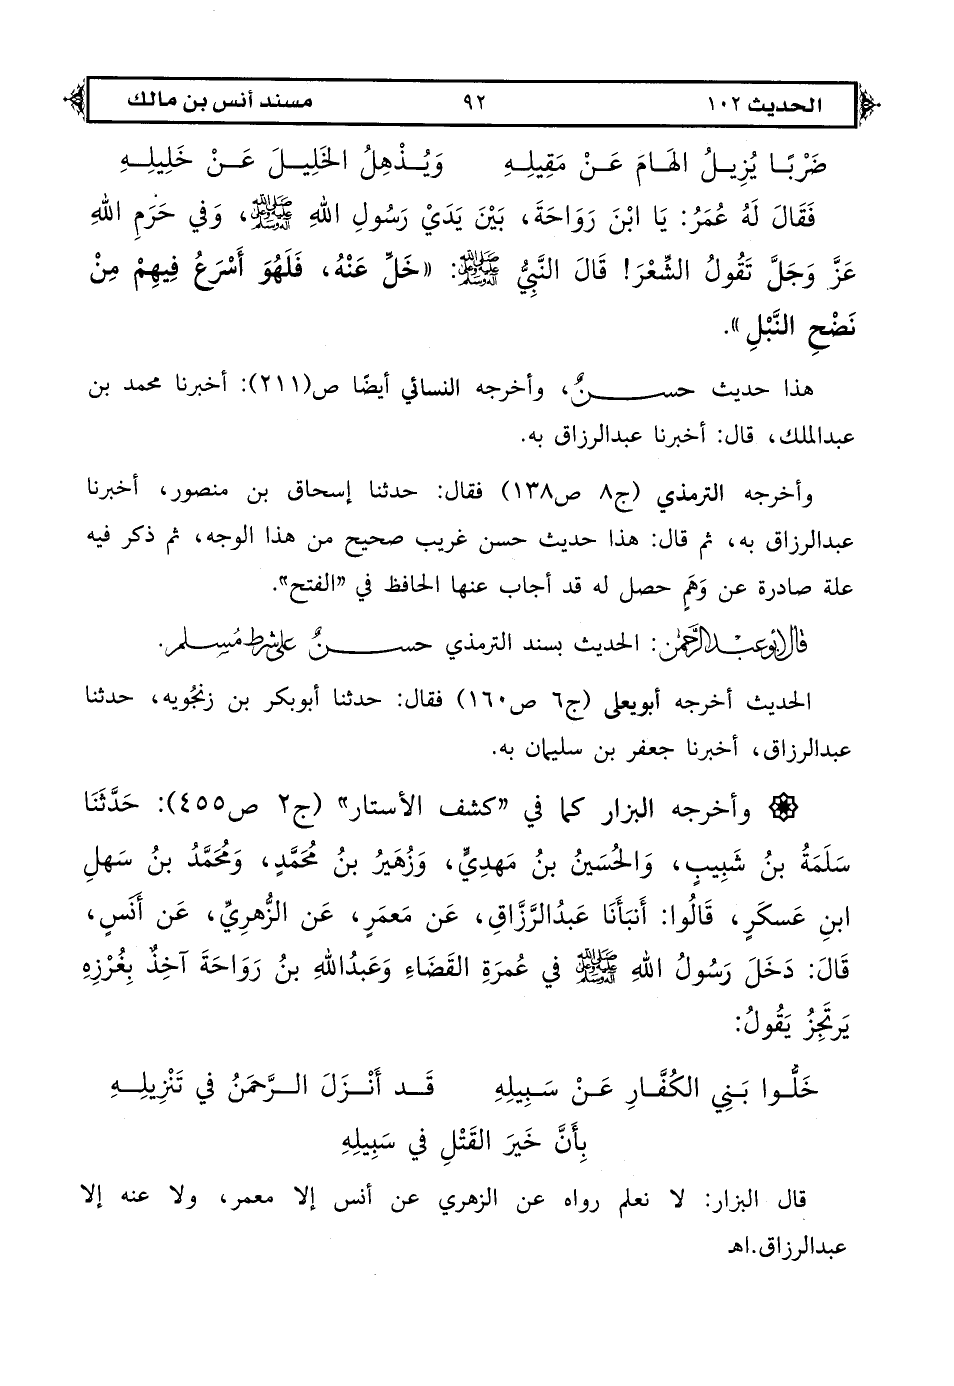 الحديث ١٠٢ ٩٢ مسند أنس بن مالك
ضَرْبًا يُزِيلُ الهَامَ عَنْ مَقِيلِهِ وَيُذْهِلُ الخَلِيلَ عَنْ خَلِيلِهِ
فَقَالَ لَهُ عُمَرُ: يَا ابْنَ رَوَاحَةَ، بَيْنَ يَدَيْ رَسُولِ اللهِ ﷺ، وَفي حَرَمِ اللهِ
عَزَّ وَجَلَّ تَقُولُ الشِّعْرَ! قَالَ النَّبِيُّ ﷺ: «خَلِّ عَنْهُ، فَلَهُوَ أَسْرَعُ فِيهِمْ مِنْ
نَضْحِ النَّبْلِ».
هذا حديث حسنٌ، وأخرجه النسائي أيضًا ص(٢١١): أخبرنا محمد بن
عبدالملك، قال: أخبرنا عبدالرزاق به.
وأخرجه الترمذي (ج٨ ص١٣٨) فقال: حدثنا إسحاق بن منصور، أخبرنا
عبدالرزاق به، ثم قال: هذا حديث حسن غريب صحيح من هذا الوجه، ثم ذكر فيه
علة صادرة عن وَهَمٍ حصل له قد أجاب عنها الحافظ في "الفتح".
قال أبو عبد الرحمن: الحديث بسند الترمذي حسنٌ على شرط مُسلم.
الحديث أخرجه أبويعلى (ج٦ ص١٦٠) فقال: حدثنا أبوبكر بن زنجُويه، حدثنا
عبدالرزاق، أخبرنا جعفر بن سليمان به.
وأخرجه البزار كما في "كشف الأستار" (ج٢ ص٤٥٥): حَدَّثَنَا
سَلَمَةُ بنُ شَبِيبٍ، وَالحُسَيْنُ بنُ مَهدِيٍّ، وَزُهَيرُ بنُ مُحَمَّدٍ، وَمُحَمَّدُ بنُ سَهلِ
ابنِ عَسكَرٍ، قَالُوا: أَنبَأَنَا عَبدُالرَّزَّاقِ، عَن مَعمَرٍ، عَن الزُّهرِيِّ، عَن أَنَسٍ،
قَالَ: دَخَلَ رَسُولُ اللهِ ﷺ في عُمرَةِ القَضَاءِ وَعَبدُاللهِ بنُ رَوَاحَةَ آخِذٌ بِغُرْزِهِ
يَرتَجِزُ يَقُولُ:
خَلُّوا بَنِي الكُفَّارِ عَنْ سَبِيلِهِ قَد أَنْزَلَ الرَّحمَنُ في تَنْزِيلِهِ
بِأَنَّ خَيرَ القَتْلِ في سَبِيلِهِ
قال البزار: لا نعلم رواه عن الزهري عن أنس إلا معمر، ولا عنه إلا
عبدالرزاق.اهـ